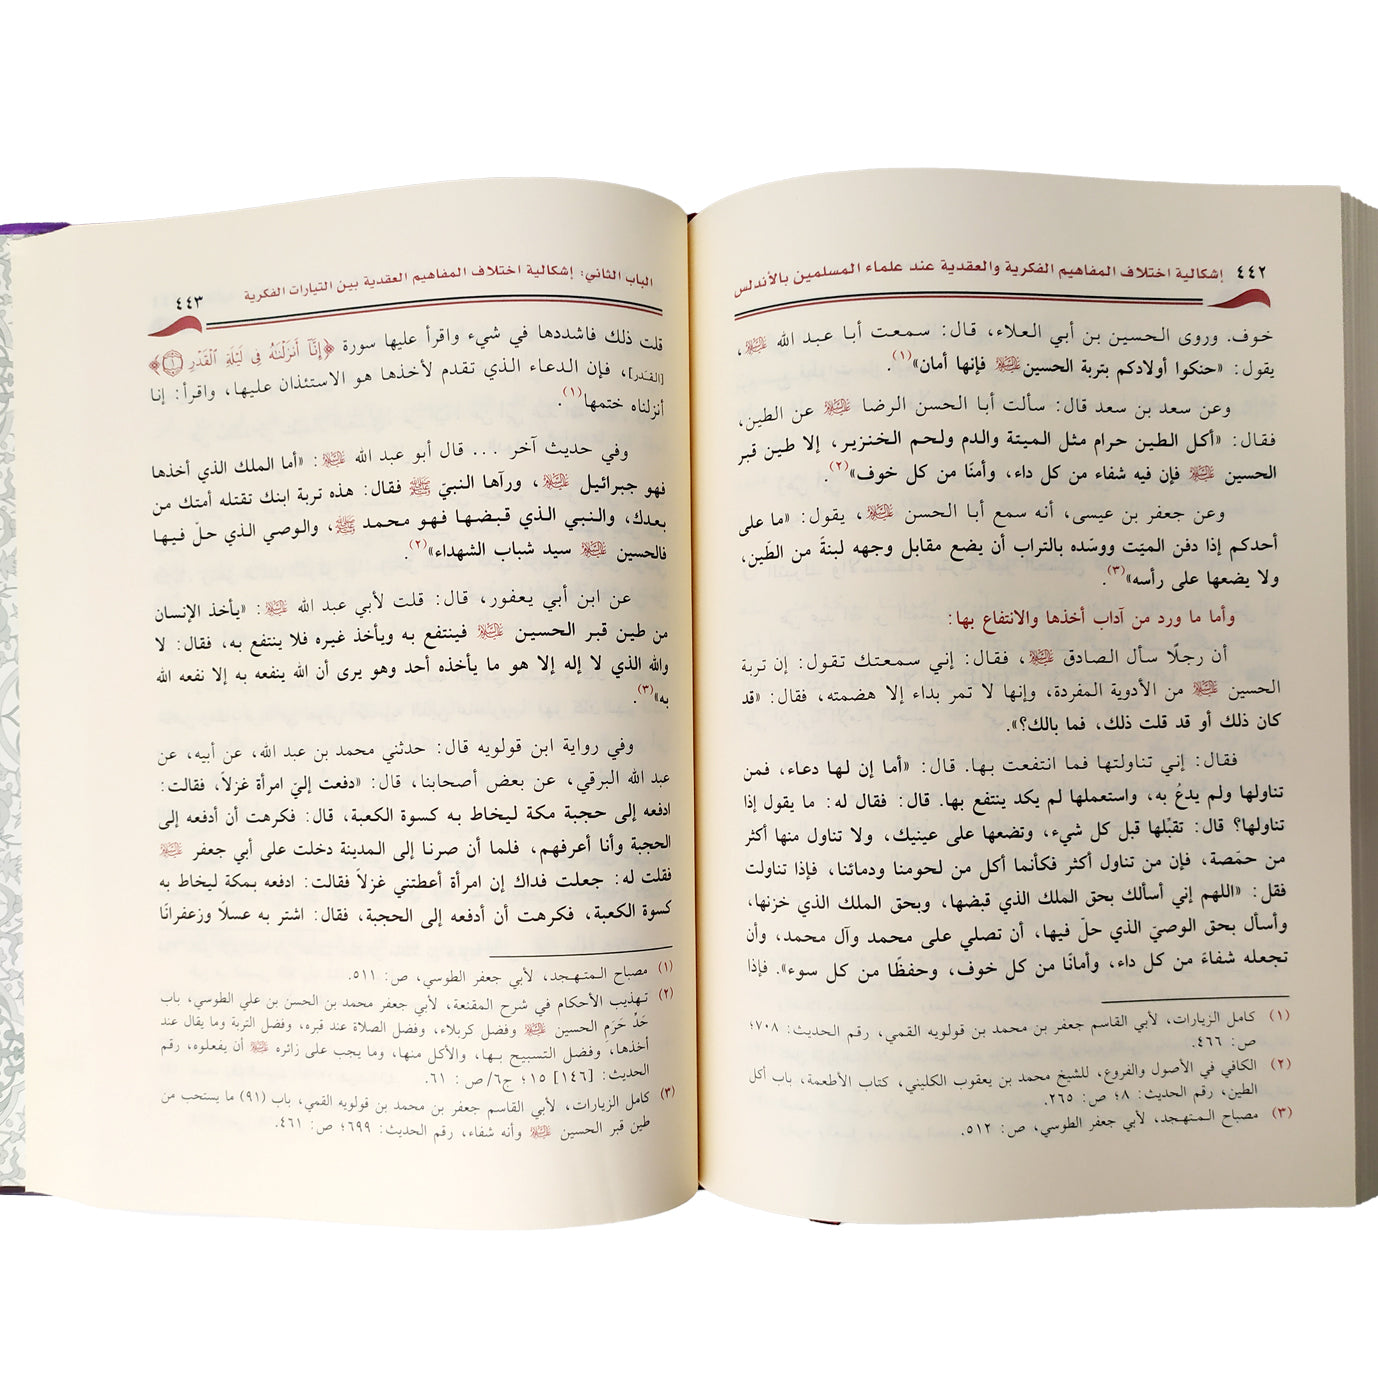 ٤٤٢ إشكالية اختلاف المفاهيم الفكرية والعقدية عند علماء المسلمين بالأندلس
خوف. وروى الحسين بن أبي العلاء، قال: سمعت أبا عبد الله عليه السلام،
يقول: «حنكوا أولادكم بتربة الحسين عليه السلام فإنها أمان»(١).
وعن سعد بن سعد قال: سألت أبا الحسن الرضا عليه السلام عن الطين،
فقال: «أكل الطين حرام مثل الميتة والدم ولحم الخنزير، إلا طين قبر
الحسين عليه السلام فإن فيه شفاء من كل داء، وأمنًا من كل خوف»(٢).
وعن جعفر بن عيسى، أنه سمع أبا الحسن عليه السلام، يقول: «ما على
أحدكم إذا دفن الميّت ووسّده بالتراب أن يضع مقابل وجهه لبنةً من الطّين،
ولا يضعها على رأسه»(٣).
وأما ما ورد من آداب أخذها والانتفاع بها:
أن رجلًا سأل الصادق عليه السلام، فقال: إني سمعتك تقول: إن تربة
الحسين عليه السلام من الأدوية المفردة، وإنها لا تمر بداء إلا هضمته، فقال: «قد
كان ذلك أو قد قلت ذلك، فما بالك؟».
فقال: إني تناولتها فما انتفعت بها. قال: «أما إن لها دعاء، فمن
تناولها ولم يدعُ به، واستعملها لم يكد ينتفع بها. قال: فقال له: ما يقول إذا
تناولها؟ قال: تقبّلها قبل كل شيء، وتضعها على عينيك، ولا تناول منها أكثر
من حمّصة، فإن من تناول أكثر فكأنما أكل من لحومنا ودمائنا، فإذا تناولت
فقل: «اللهم إني أسألك بحق الملك الذي قبضها، وبحق الملك الذي خزنها،
وأسأل بحق الوصيّ الذي حلّ فيها، أن تصلي على محمد وآل محمد، وأن
تجعله شفاءً من كل داء، وأمانًا من كل خوف، وحفظًا من كل سوء». فإذا
(١) كامل الزيارات، لأبي القاسم جعفر بن محمد بن قولويه القمي، رقم الحديث: ٧٠٨؛
ص: ٤٦٦.
(٢) الكافي في الأصول والفروع، للشيخ محمد بن يعقوب الكليني، كتاب الأطعمة، باب أكل
الطين، رقم الحديث: ٨؛ ص: ٢٦٥.
(٣) مصباح المتهجد، لأبي جعفر الطوسي، ص: ٥١٢.
الباب الثاني: إشكالية اختلاف المفاهيم العقدية بين التيارات الفكرية ٤٤٣
قلت ذلك فاشددها في شيء واقرأ عليها سورة ﴿إِنَّا أَنزَلْنَاهُ فِي لَيْلَةِ الْقَدْرِ ١﴾
[القدر]، فإن الدعاء الذي تقدم لأخذها هو الاستئذان عليها، واقرأ: إنا
أنزلناه ختمها(١).
وفي حديث آخر ... قال أبو عبد الله عليه السلام: «أما الملك الذي أخذها
فهو جبرائيل عليه السلام، ورآها النبيّ صلى الله عليه وسلم فقال: هذه تربة ابنك تقتله أمتك من
بعدك، والنبي الذي قبضها فهو محمد صلى الله عليه وسلم، والوصي الذي حلّ فيها
فالحسين عليه السلام سيد شباب الشهداء»(٢).
عن ابن أبي يعفور، قال: قلت لأبي عبد الله عليه السلام: «يأخذ الإنسان
من طين قبر الحسين عليه السلام فينتفع به ويأخذ غيره فلا ينتفع به، فقال: لا
والله الذي لا إله إلا هو ما يأخذه أحد وهو يرى أن الله ينفعه به إلا نفعه الله
به»(٣).
وفي رواية ابن قولويه قال: حدثني محمد بن عبد الله، عن أبيه، عن
عبد الله البرقي، عن بعض أصحابنا، قال: «دفعت إليّ امرأة غزلاً، فقالت:
ادفعه إلى حجبة مكة ليخاط به كسوة الكعبة، قال: فكرهت أن أدفعه إلى
الحجبة وأنا أعرفهم، فلما أن صرنا إلى المدينة دخلت على أبي جعفر عليه السلام
فقلت له: جعلت فداك إن امرأة أعطتني غزلاً فقالت: ادفعه بمكة ليخاط به
كسوة الكعبة، فكرهت أن أدفعه إلى الحجبة، فقال: اشتر به عسلًا وزعفرانًا
(١) مصباح المتهجد، لأبي جعفر الطوسي، ص: ٥١١.
(٢) تهذيب الأحكام في شرح المقنعة، لأبي جعفر محمد بن الحسن بن علي الطوسي، باب
حَدّ حَرَمِ الحسين عليه السلام وفضل كربلاء، وفضل الصلاة عند قبره، وفضل التربة وما يقال عند
أخذها، وفضل التسبيح بها، والأكل منها، وما يجب على زائره عليه السلام أن يفعلوه، رقم
الحديث: [١٤٦] ١٥؛ ج٦/ص: ٦١.
(٣) كامل الزيارات، لأبي القاسم جعفر بن محمد بن قولويه القمي، باب (٩١) ما يستحب من
طين قبر الحسين عليه السلام وأنه شفاء، رقم الحديث: ٦٩٩؛ ص: ٤٦١.